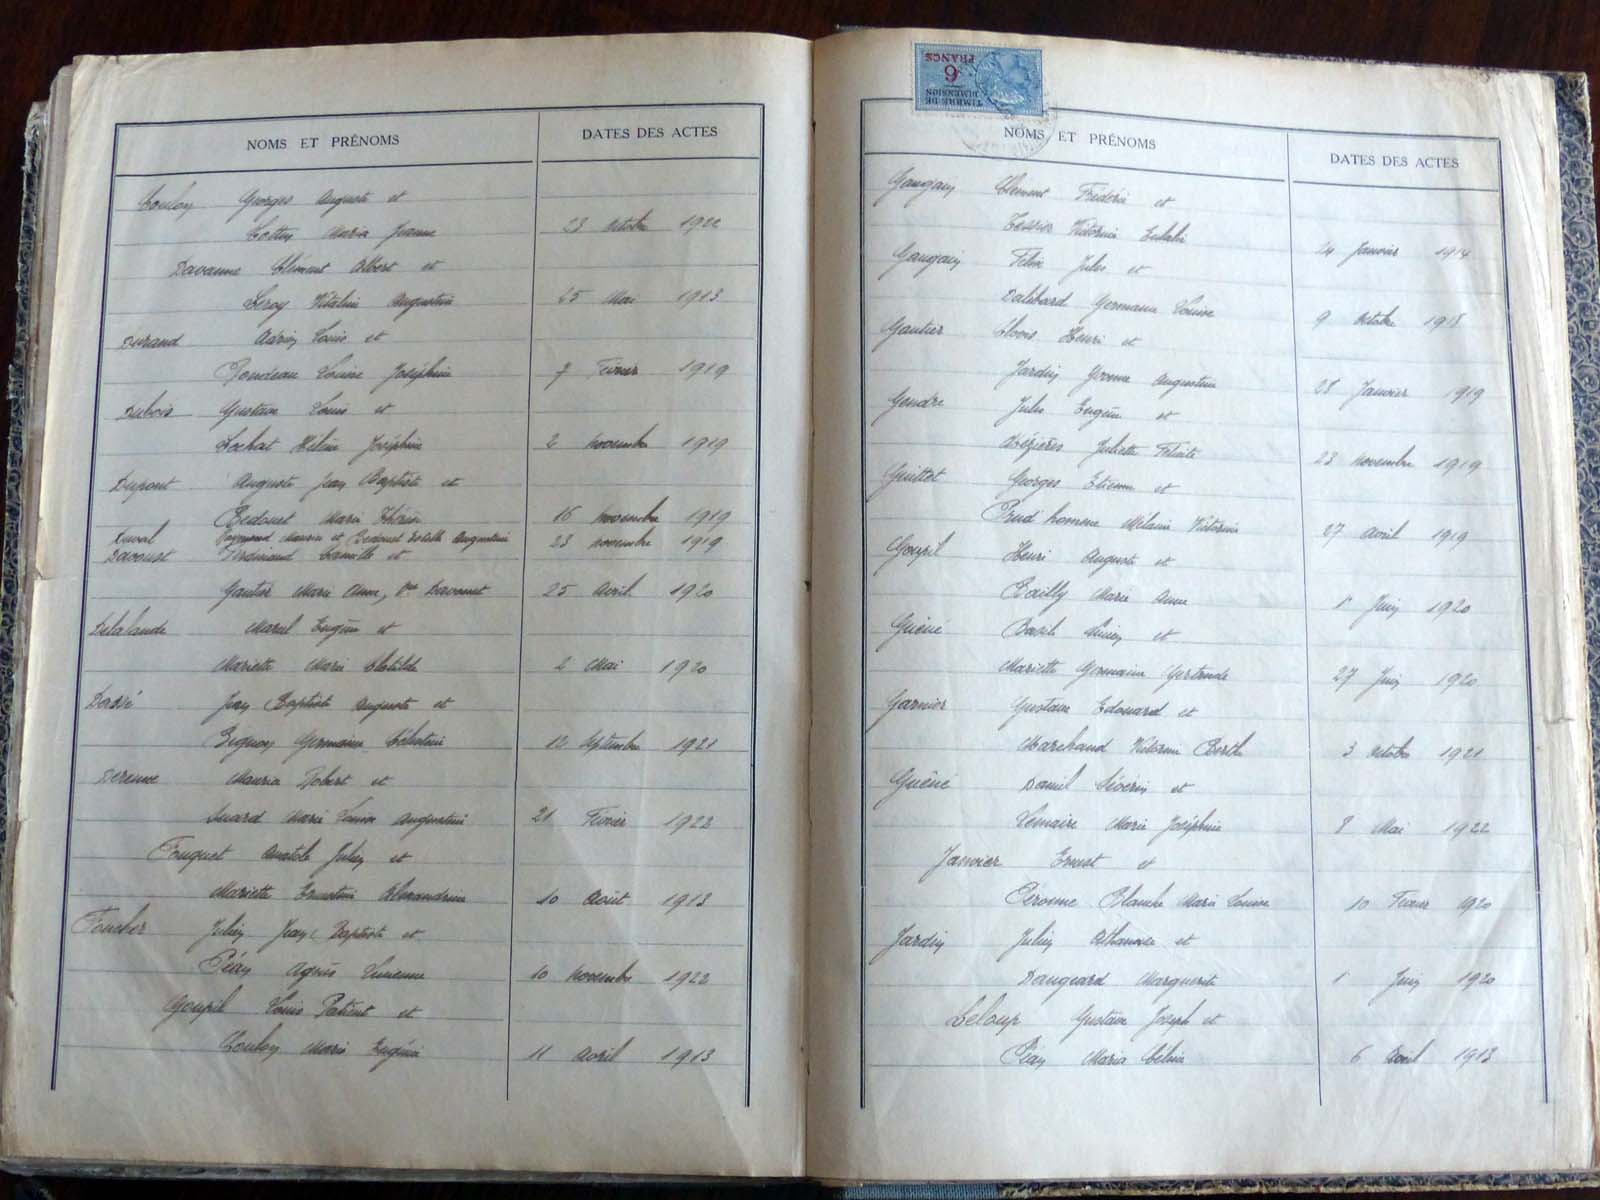 NOMS ET PRÉNOMS
DATES DES ACTES
Coulon Georges Auguste et
Cottin Maria Jeanne 23 octobre 1922
Davanne Clément Albert et
Leroy Vitaline Augustine 25 Mai 1913
Durand Adrien Louis et
Louise Joséphine 7 Février 1919
Dubois Gustave Louis et
Lochat Hélène Joséphine 2 novembre 1919
Dupont Auguste Jean Baptiste et
Bedouet Marie 16 novembre 1919
Duval Raymond Maurice et Bedouet Augustine 23 novembre 1919
Davoust Ferdinand Camille et
Gautier Marie Anne, Vve Davoust 25 avril 1920
Delalande Marcel Eugène et
Mariette Marie Clotilde 2 Mai 1920
Dassé Jean Baptiste Auguste et
Germaine Célestine 12 Septembre 1921
Dereuse Maurice Robert et
Suard Marie Louise Augustine 21 Février 1922
Fouquet Anatole Julien et
Mariette Ernestine Alexandrine 10 Août 1913
Foucher Julien Jean Baptiste et
Péan Agnès Lucienne 10 novembre 1922
Goupil Louis Patient et
Coulon Marie Eugénie 11 avril 1913
TIMBRE DE
DIMENSION
6
FRANCS
NOMS ET PRÉNOMS
DATES DES ACTES
Gaugain Clément Frédéric et
Tessier Victorine Eulalie 24 Janvier 1914
Gaugain Félix Jules et
Dalibard Germaine Louise 9 octobre 1918
Gautier Clovis Henri et
Jardin Yvonne Augustine 28 Janvier 1919
Gendre Jules Eugène et
Mézières Juliette Félicité 23 novembre 1919
Guittet Georges Etienne et
Prud'homme Mélanie Victorine 27 avril 1919
Goupil Henri Auguste et
Bailly Marie Anne 1 Juin 1920
Guéné Basile et
Mariette Germaine Gertrude 27 Juin 1920
Garnier Gustave Edouard et
Marchand Victorine Berthe 3 octobre 1921
Guéné Daniel Séverin et
Lemaire Marie Joséphine 8 Mai 1922
Janvier Ernest et
Blanche Marie Louise 10 Février 1920
Jardin Julien Athanase et
Daugeard Marguerite 1 Juin 1920
Leloup Gustave Joseph et
Péan Maria Céline 6 avril 1913